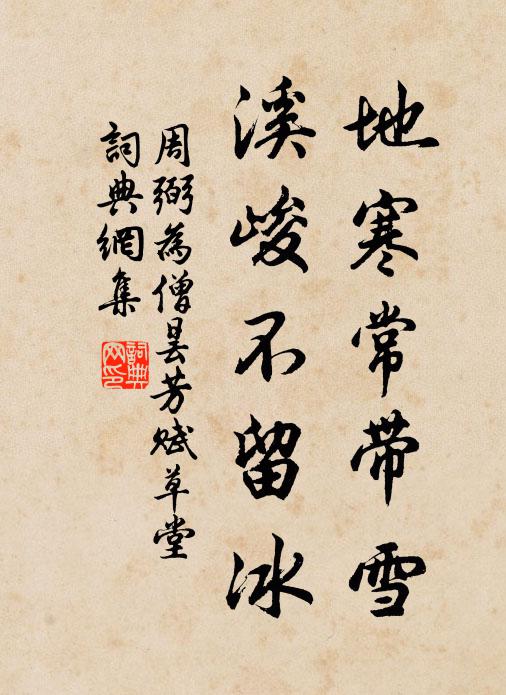 地寒常带雪
溪峻不留冰
周弼為僧曇芳赋草堂
詞典網集
詞典网印